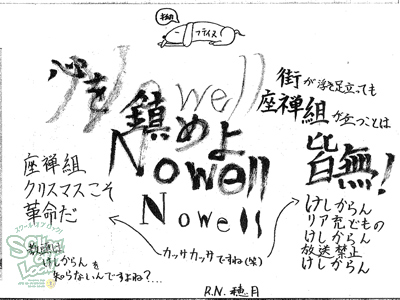 フライス
心を
Nowell
鎮めよ
Nowell
Nowell
街が浮き足立っても
座禅組が立つことは
皆無!
座禅組
クリスマスこそ
革命だ
放送は
けしからんを
知らないんですよね?…
カッサカッサですね(笑)
けしからん
リア充どもの
けしからん
放送禁止
けしからん
R.N. 穂月
スクールオブロック!
SCHOOL
OF LOCK!